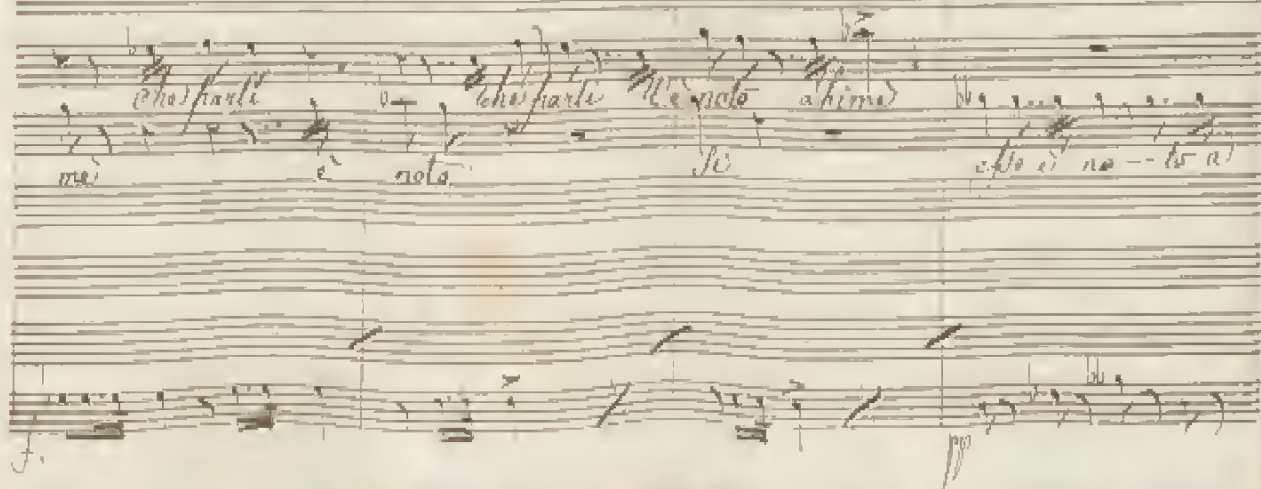 Che parli che parli l'è noto ahimè
mè è noto Si esso è no -- to a
f. pp